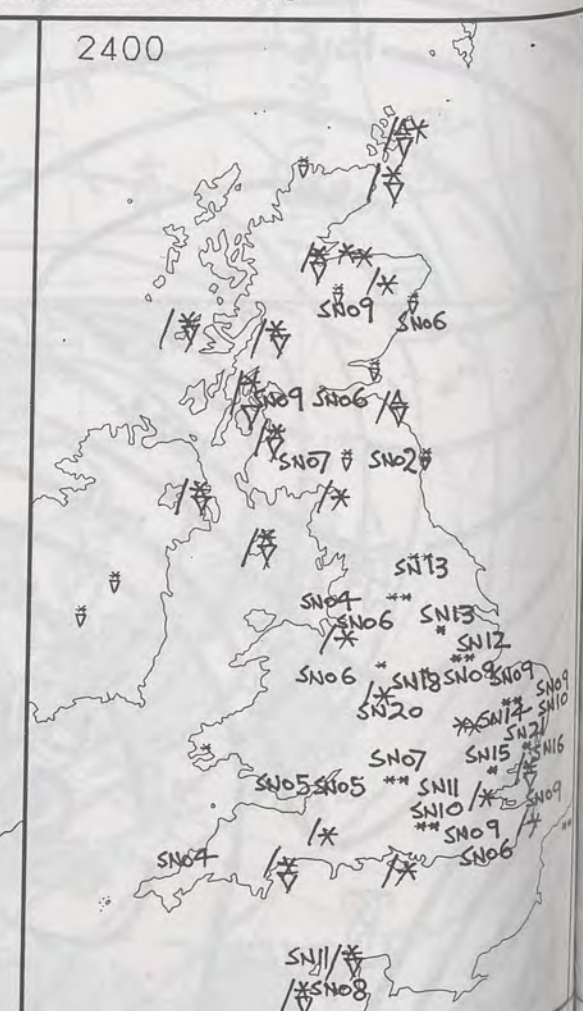 2400
SN09
SN06
SN09 SN06
SN07 SN02
SN13
SN04
SN06 SN13
SN12
SN06 SN18 SN09 SN09
SN09
SN20 SN14 SN10
SN21
SN07 SN15 SN16
SN05 SN05 SN11
SN10 SN09
SN09
SN04 SN06
SN11
SN08